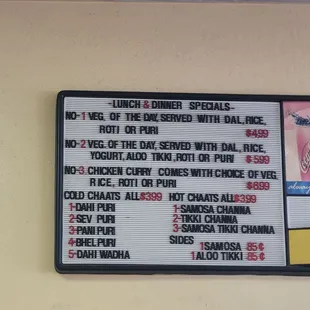 -LUNCH & DINNER SPECIALS-
NO-1 VEG. OF THE DAY, SERVED WITH DAL, RICE,
ROTI OR PURI
$4.99
NO-2 VEG. OF THE DAY, SERVED WITH DAL, RICE,
YOGURT, ALOO TIKKI, ROTI OR PURI $5.99
NO-3. CHICKEN CURRY COMES WITH CHOICE OF VEG.
RICE, ROTI OR PURI $6.99
COLD CHAATS ALL $3.99
1-DAHI PURI
2-SEV PURI
3-PANI PURI
4-BHEL PURI
5-DAHI WADHA
HOT CHAATS ALL $3.99
1-SAMOSA CHANNA
2-TIKKI CHANNA
3-SAMOSA TIKKI CHANNA
SIDES
1 SAMOSA 85¢
1 ALOO TIKKI 85¢